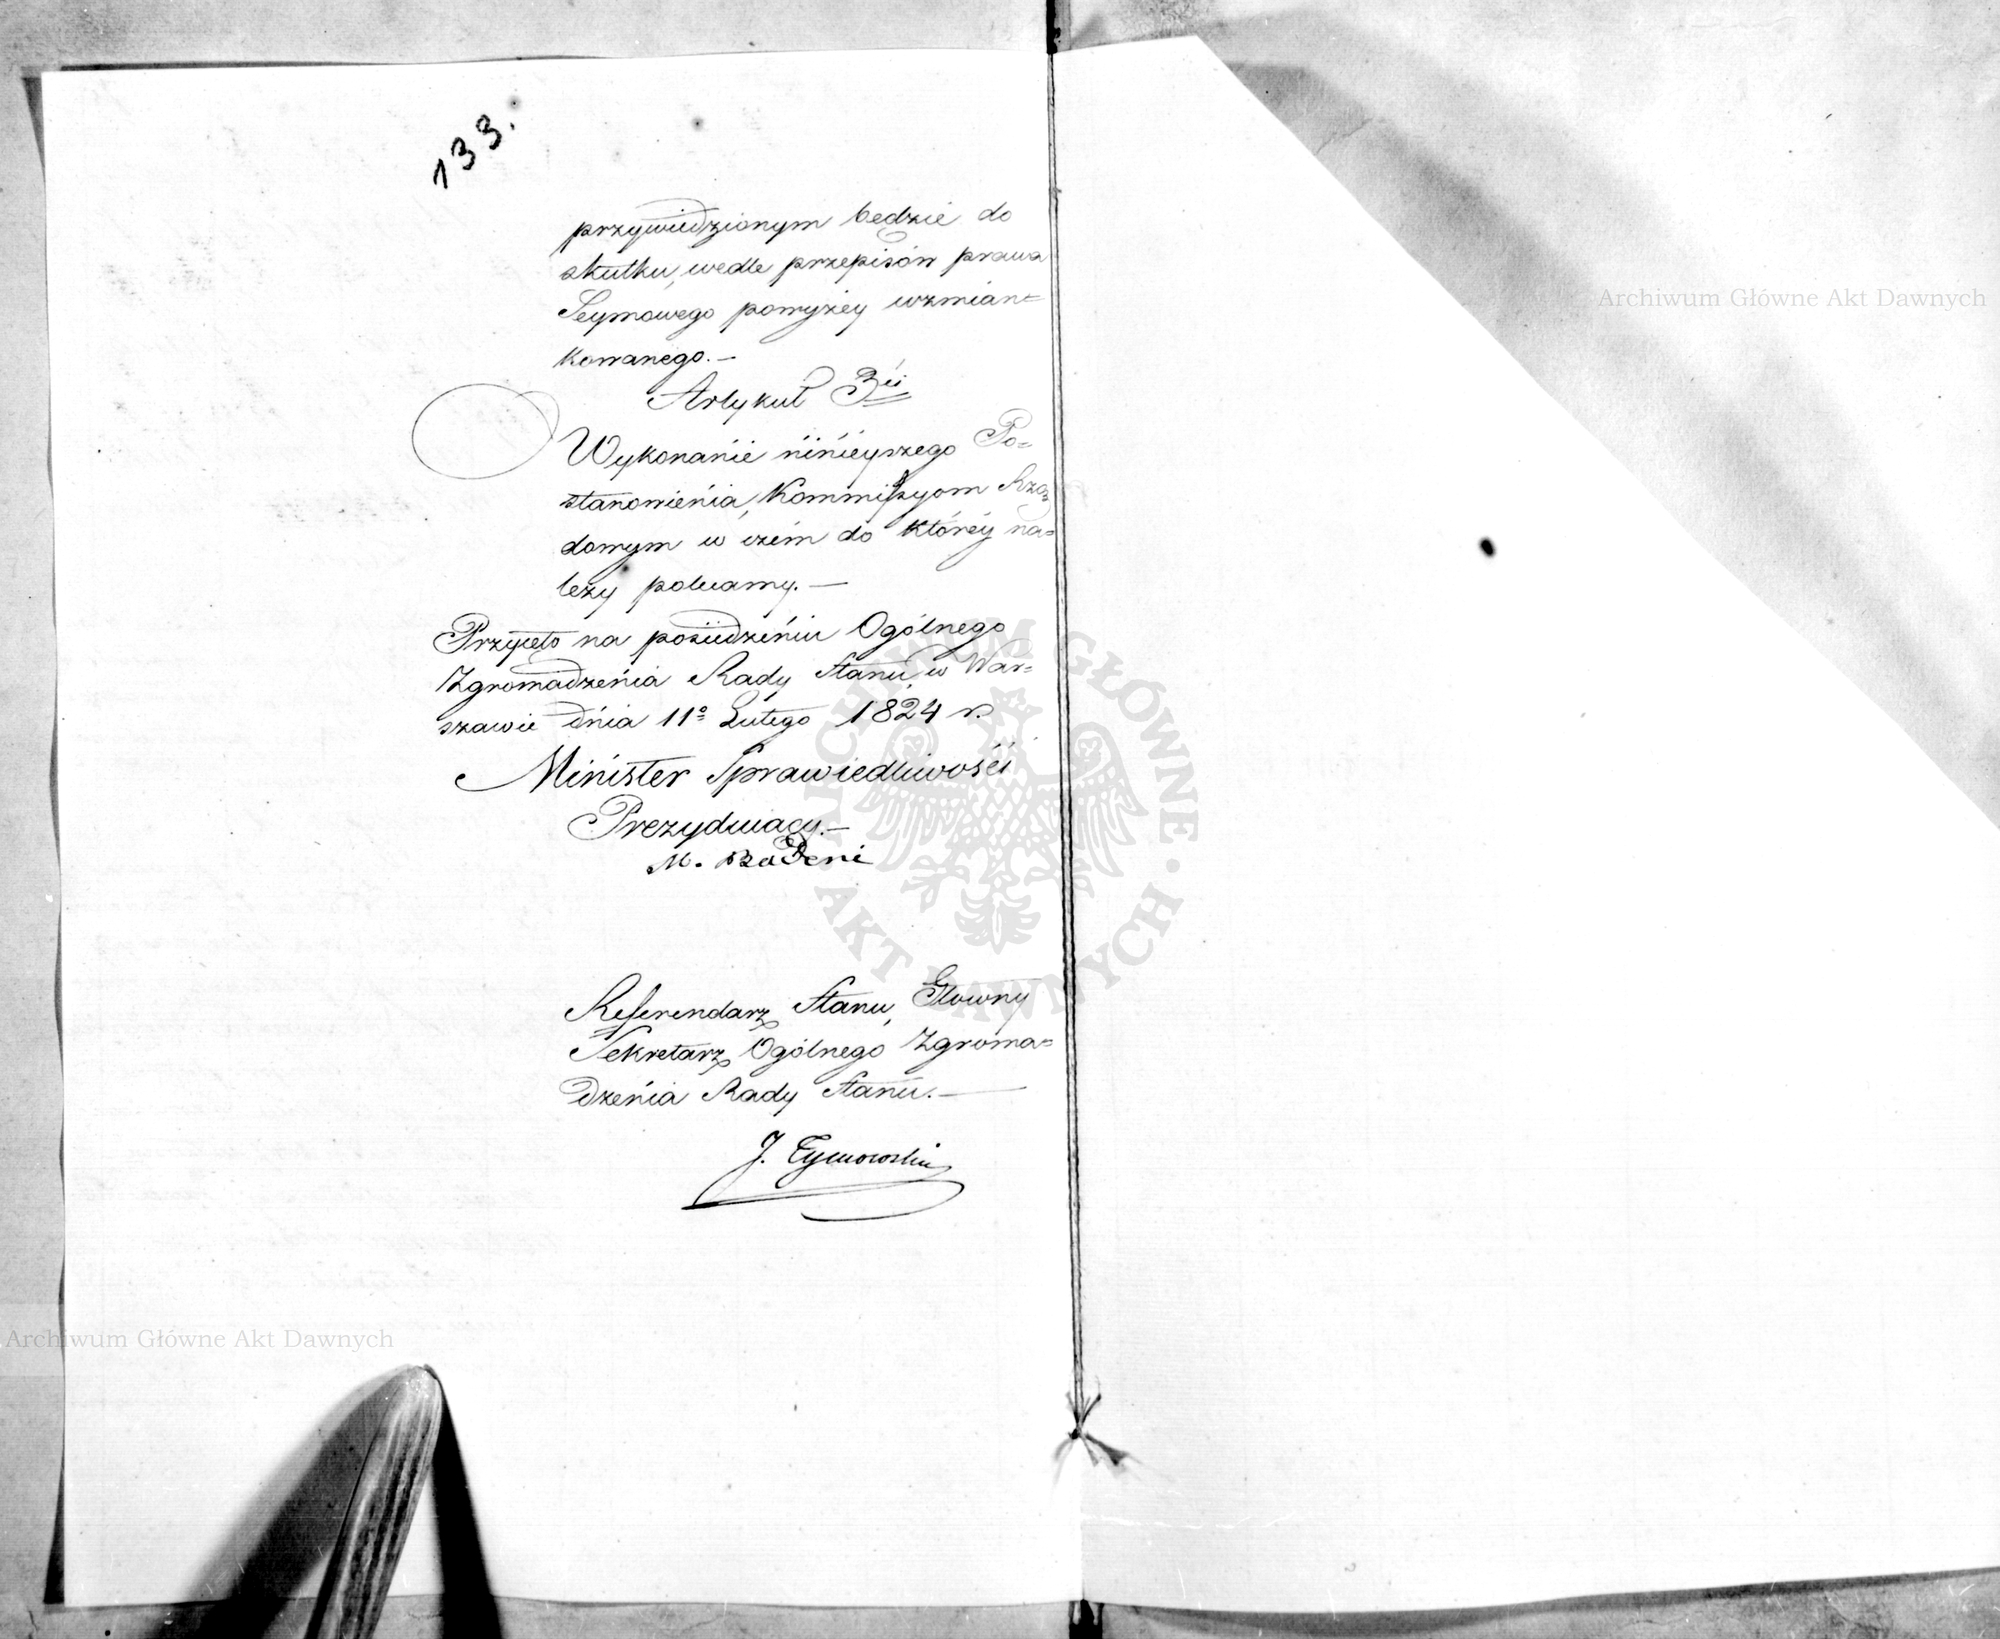 133.
przywiedzionym będzie do
skutku, wedle przepisów prawa
Seymowego powyżey wzmian=
kowanego.—
Artykuł 3ci
Wykonanie ninieyszego Po=
stanowienia, Kommissyom Rzą=
dowym w czém do któréy na=
leży polecamy.—
Przyięto na posiedzeniu Ogólnego
Zgromadzenia Rady Stanu, w War=
szawie dnia 11o Lutego 1824 r.
Minister Sprawiedliwości
Prezyduiący.—
M. Badeni
Referendarz Stanu, Głowny
Sekretarz Ogólnego Zgroma=
dzenia Rady Stanu.—
J. Tymowski
Archiwum Główne Akt Dawnych
Archiwum Główne Akt Dawnych
ARCHIWUM GŁÓWNE · AKT DAWNYCH ·